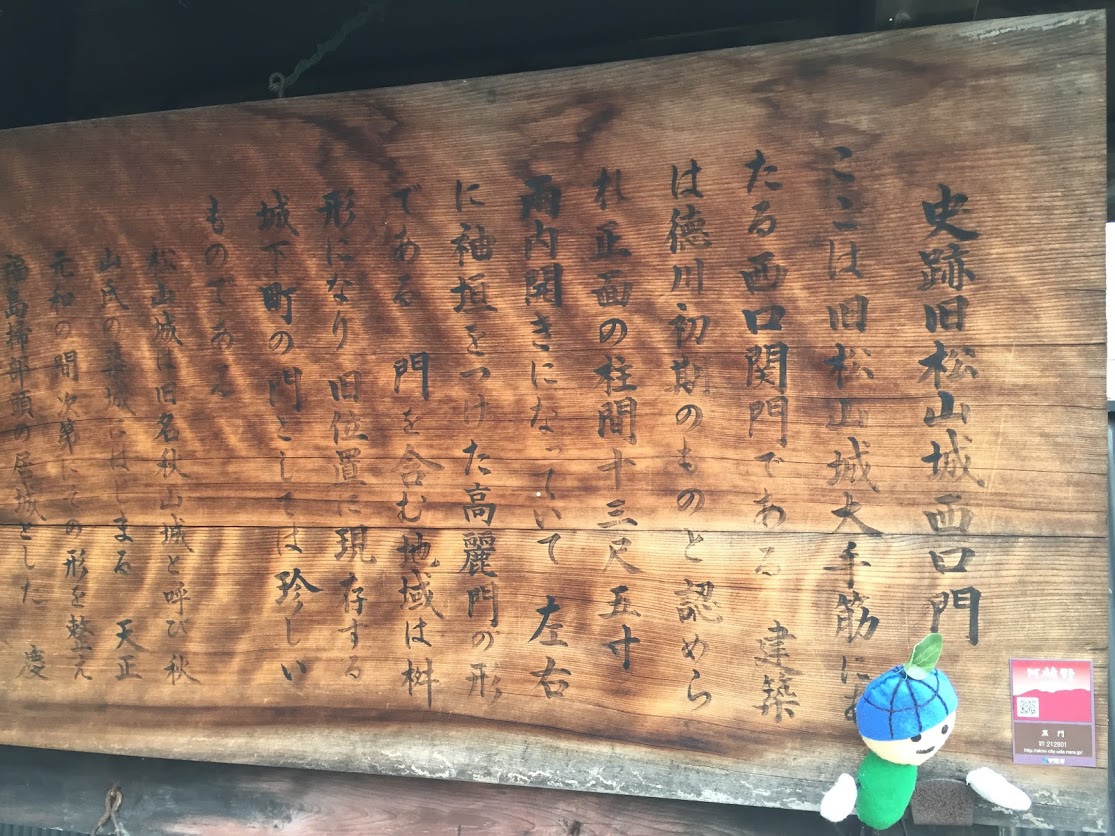 史跡旧松山城西口門
ここは旧松山城大手筋にあ
たる西口関門である 建築
は徳川初期のものと認めら
れ正面の柱間十三尺五寸
両内開きになっていて 左右
に袖垣をつけた高麗門の形
である 門を含む地域は桝
形になり旧位置に現存する
城下町の門としては珍しい
ものである
松山城は旧名秋山城と呼び秋
山氏の築城にはじまる 天正
元和の間次第にその形を整え
福島掃部頭の居城とした 慶
阿騎野
黒門
01 212801
http://akino.city.uda.nara.jp/